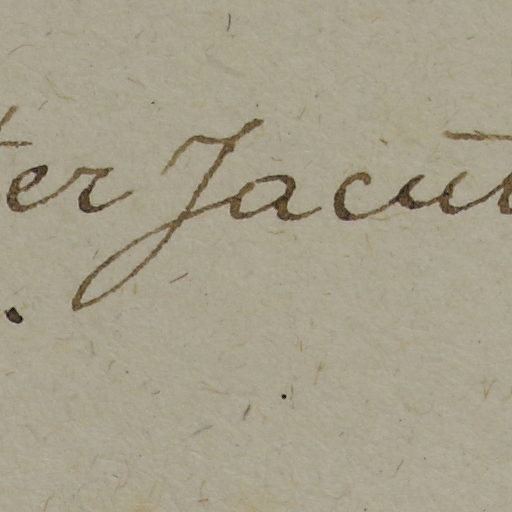 ter Jacu